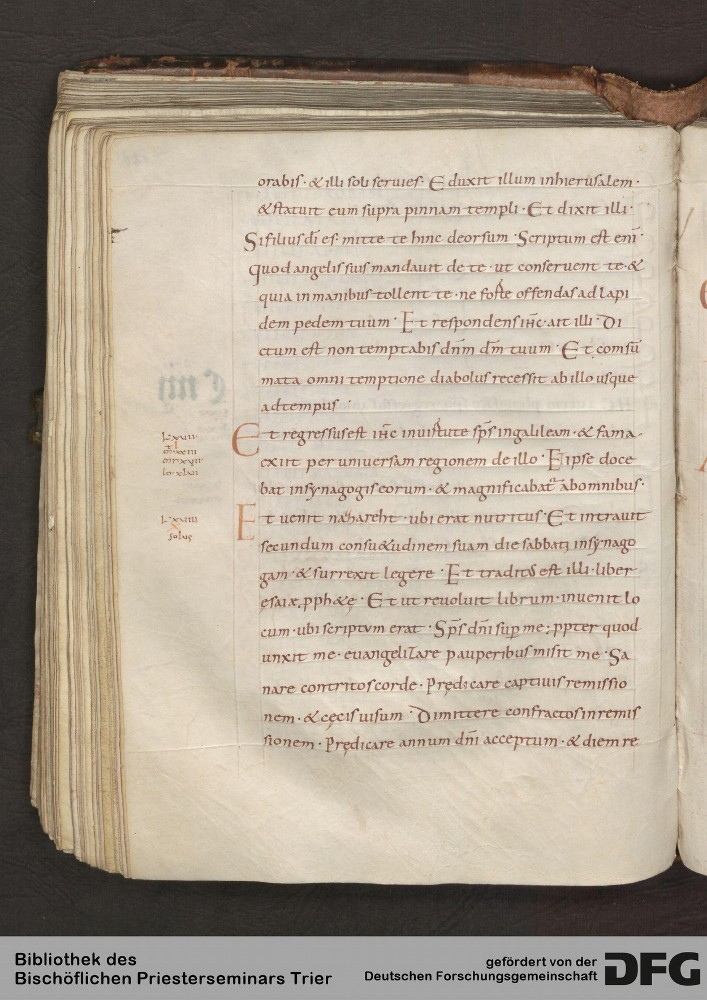 orabis · & illi soli seruies · E duxit illum inhierusalem ·
& statuit eum supra pinnam templi · Et dixit illi ·
Sifilius dī es · mitte te hinc deorsum · Scriptum est enī ·
quod angelis suis mandauit de te · ut conseruent te · &
quia inmanibus tollent te · ne forte offendas ad lapi
dem pedem tuum · Et respondens ihc · ait illi · Di
ctum est non temptabis dnm dm tuum · Et consū
mata omni temptione diabolus recessit ab illo usque
adtempus ·
Et regressus est ihc inuirtute sps ingalileam · & fama
exiit per uniuersam regionem de illo · E ipse doce
bat insynagogis eorum · & magnificabat abomnibus ·
Et uenit nazareht · ubi erat nutritus · Et intrauit
secundum consu&udinem suam die sabbati insynago
gam · & surrexit legere · Et traditus est illi · liber
esaiæ pph&ę · Et ut reuoluit librum · inuenit lo
cum · ubi scriptum erat · Sps dni sup me ; ppter quod
unxit me · euangelizare pauperibus misit me · Sa
nare contritos corde · Prędicare captiuis remissio
nem · & cęcis uisum · Dimittere confractos inremis
sionem · Prędicare annum dni acceptum · & diem re
solus
Bibliothek des
Bischöflichen Priesterseminars Trier
gefördert von der
Deutschen Forschungsgemeinschaft
DFG